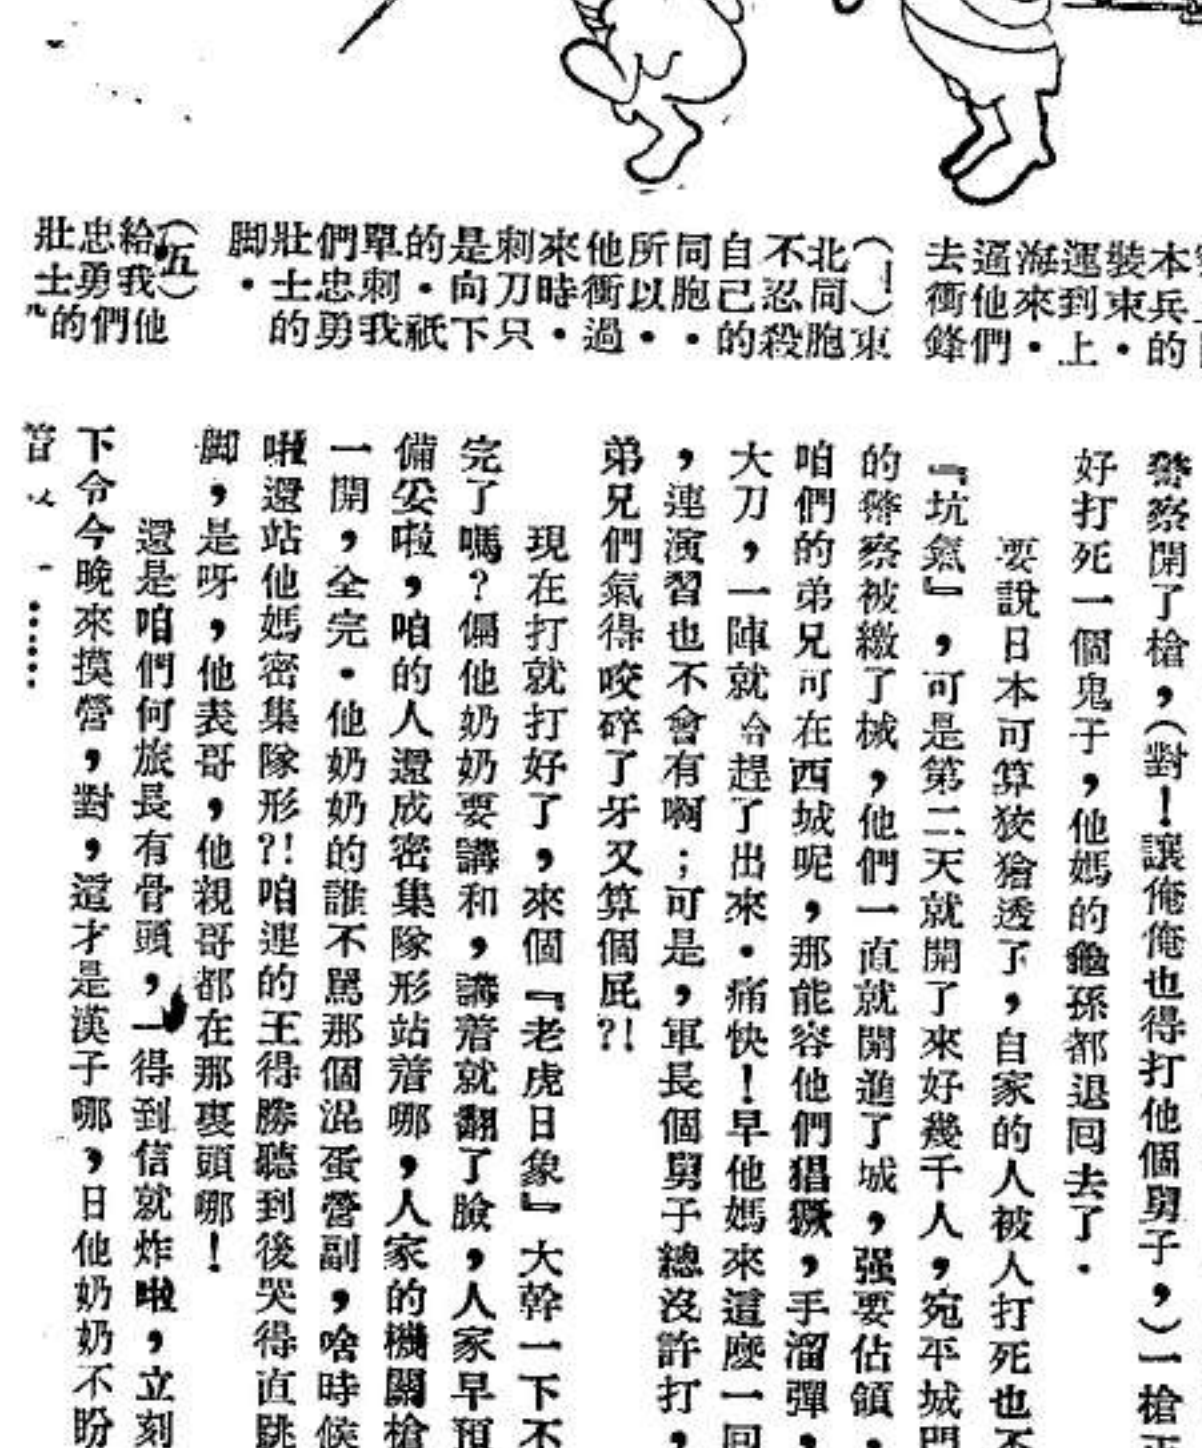 本兵的
裝東・
運到上
海來・
逼他們
去衝鋒
（！）東
北同胞
不忍殺
自己的
同胞・
所以・
他衝過
來時・
刺刀只
是向下
的・祇
單刺我
們忠勇
壯士的
脚・
（五）他
給我們
忠勇的
壯士
警察開了槍，（對！讓俺俺也得打他個舅子，）一槍正
好打死一個鬼子，他媽的龜孫都退回去了．
要說日本可算狡猾透了，自家的人被人打死也不
『坑氣』，可是第二天就開了來好幾千人，宛平城門
的警察被繳了械，他們一直就開進了城，强要佔領，
咱們的弟兄可在西城呢，那能容他們猖獗，手溜彈，
大刀，一陣就給趕了出來．痛快！早他媽來這麽一回
，連演習也不會有啊；可是，軍長個舅子總沒許打，
弟兄們氣得咬碎了牙又算個屁?!
現在打就打好了，來個『老虎日象』大幹一下不
完了嗎？偏他奶奶要講和，講着就翻了臉，人家早預
備妥啦，咱的人還成密集隊形站着哪，人家的機關槍
一開，全完．他奶奶的誰不駡那個混蛋營副，啥時候
啦還站他媽密集隊形?!咱連的王得勝聽到後哭得直跳
脚，是呀，他表哥，他親哥都在那裏頭哪！
還是咱們何旅長有骨頭，一得到信就炸啦，立刻
下令今晚來摸營，對，這才是漢子哪，日他奶奶不盼
……